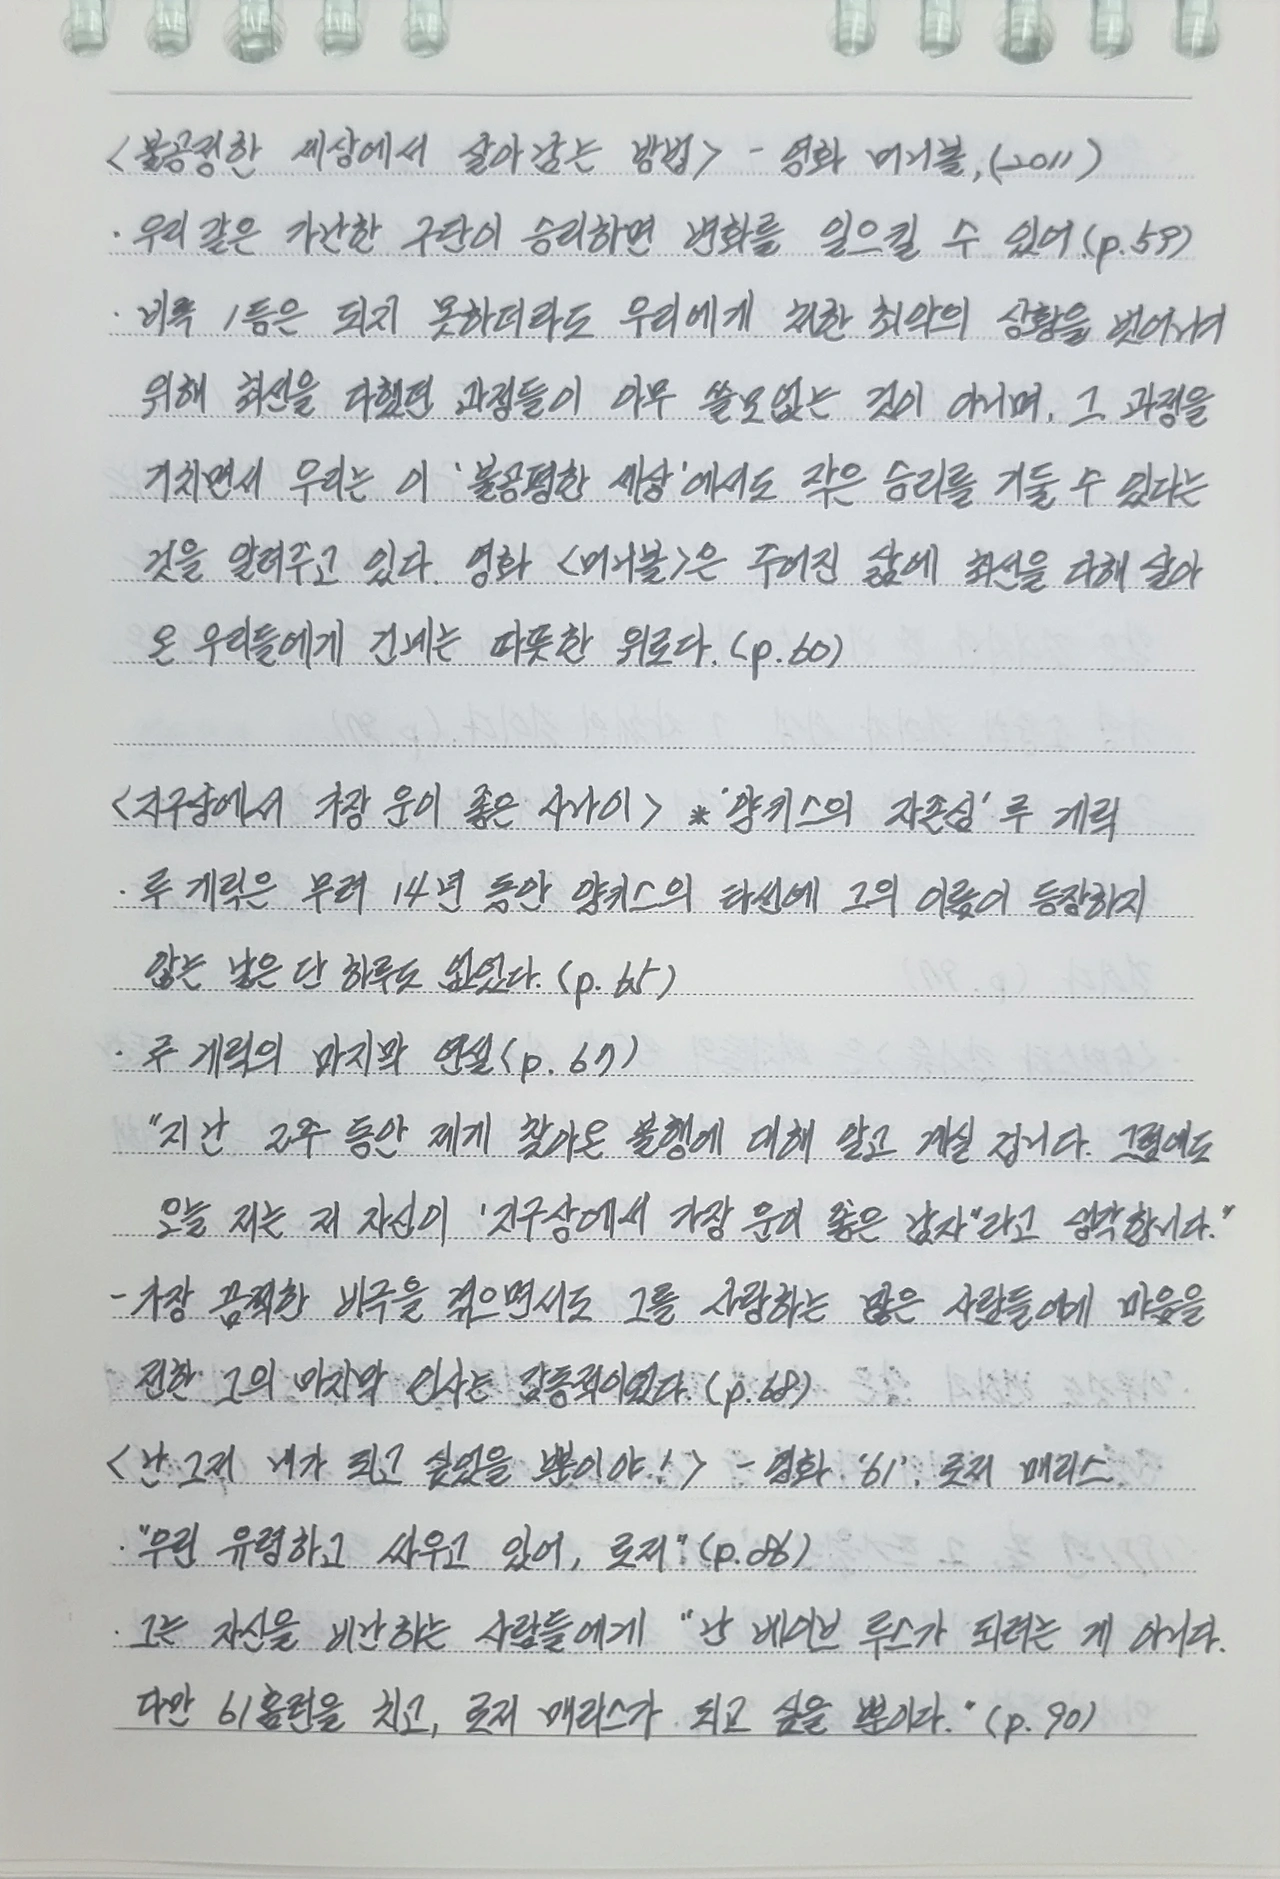 <불공평한 세상에서 살아남는 방법> - 영화 머니볼, (2011)
· 우리 같은 가난한 구단이 승리하면 변화를 일으킬 수 있어.(p.59)
· 비록 1등은 되지 못하더라도 우리에게 처한 최악의 상황을 벗어나려
위해 최선을 다했던 과정들이 아무 쓸모없는 것이 아니며, 그 과정을
거치면서 우리는 이 '불공평한 세상'에서도 작은 승리를 거둘 수 있다는
것을 알려주고 있다. 영화 <머니볼>은 주어진 삶에 최선을 다해 살아
온 우리들에게 건네는 따뜻한 위로다. (p.60)
<지구상에서 가장 운이 좋은 사나이> * '양키스의 자존심' 루 게릭
· 루 게릭은 무려 14년 동안 양키스의 타선에 그의 이름이 등장하지
않는 날은 단 하루도 없었다. (p.65)
· 루 게릭의 마지막 연설 (p.67)
"지난 2주 동안 제게 찾아온 불행에 대해 알고 계실 겁니다. 그럼에도
오늘 저는 저 자신이 '지구상에서 가장 운이 좋은 남자"라고 생각합니다."
- 가장 끔찍한 비극을 겪으면서도 그를 사랑하는 많은 사람들에게 마음을
전한 그의 마지막 인사는 감동적이었다. (p.68)
<난 그저 내가 되고 싶었을 뿐이야!> - 영화 '61', 로저 매리스
· "우린 유령하고 싸우고 있어, 로저" (p.86)
· 그는 자신을 비난하는 사람들에게 "난 베이브 루스가 되려는 게 아니다.
다만 61홈런을 치고, 로저 매리스가 되고 싶을 뿐이다." (p.90)